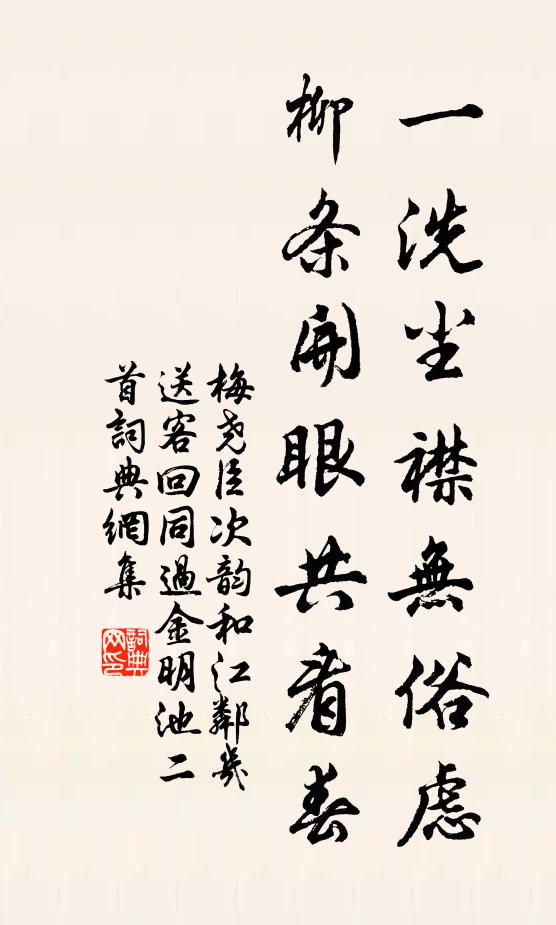 一洗尘襟無俗虑
柳条開眼共看春
梅尧臣次韵和江鄰幾
送客回同過金明池二
首詞典網集
詞典
网印